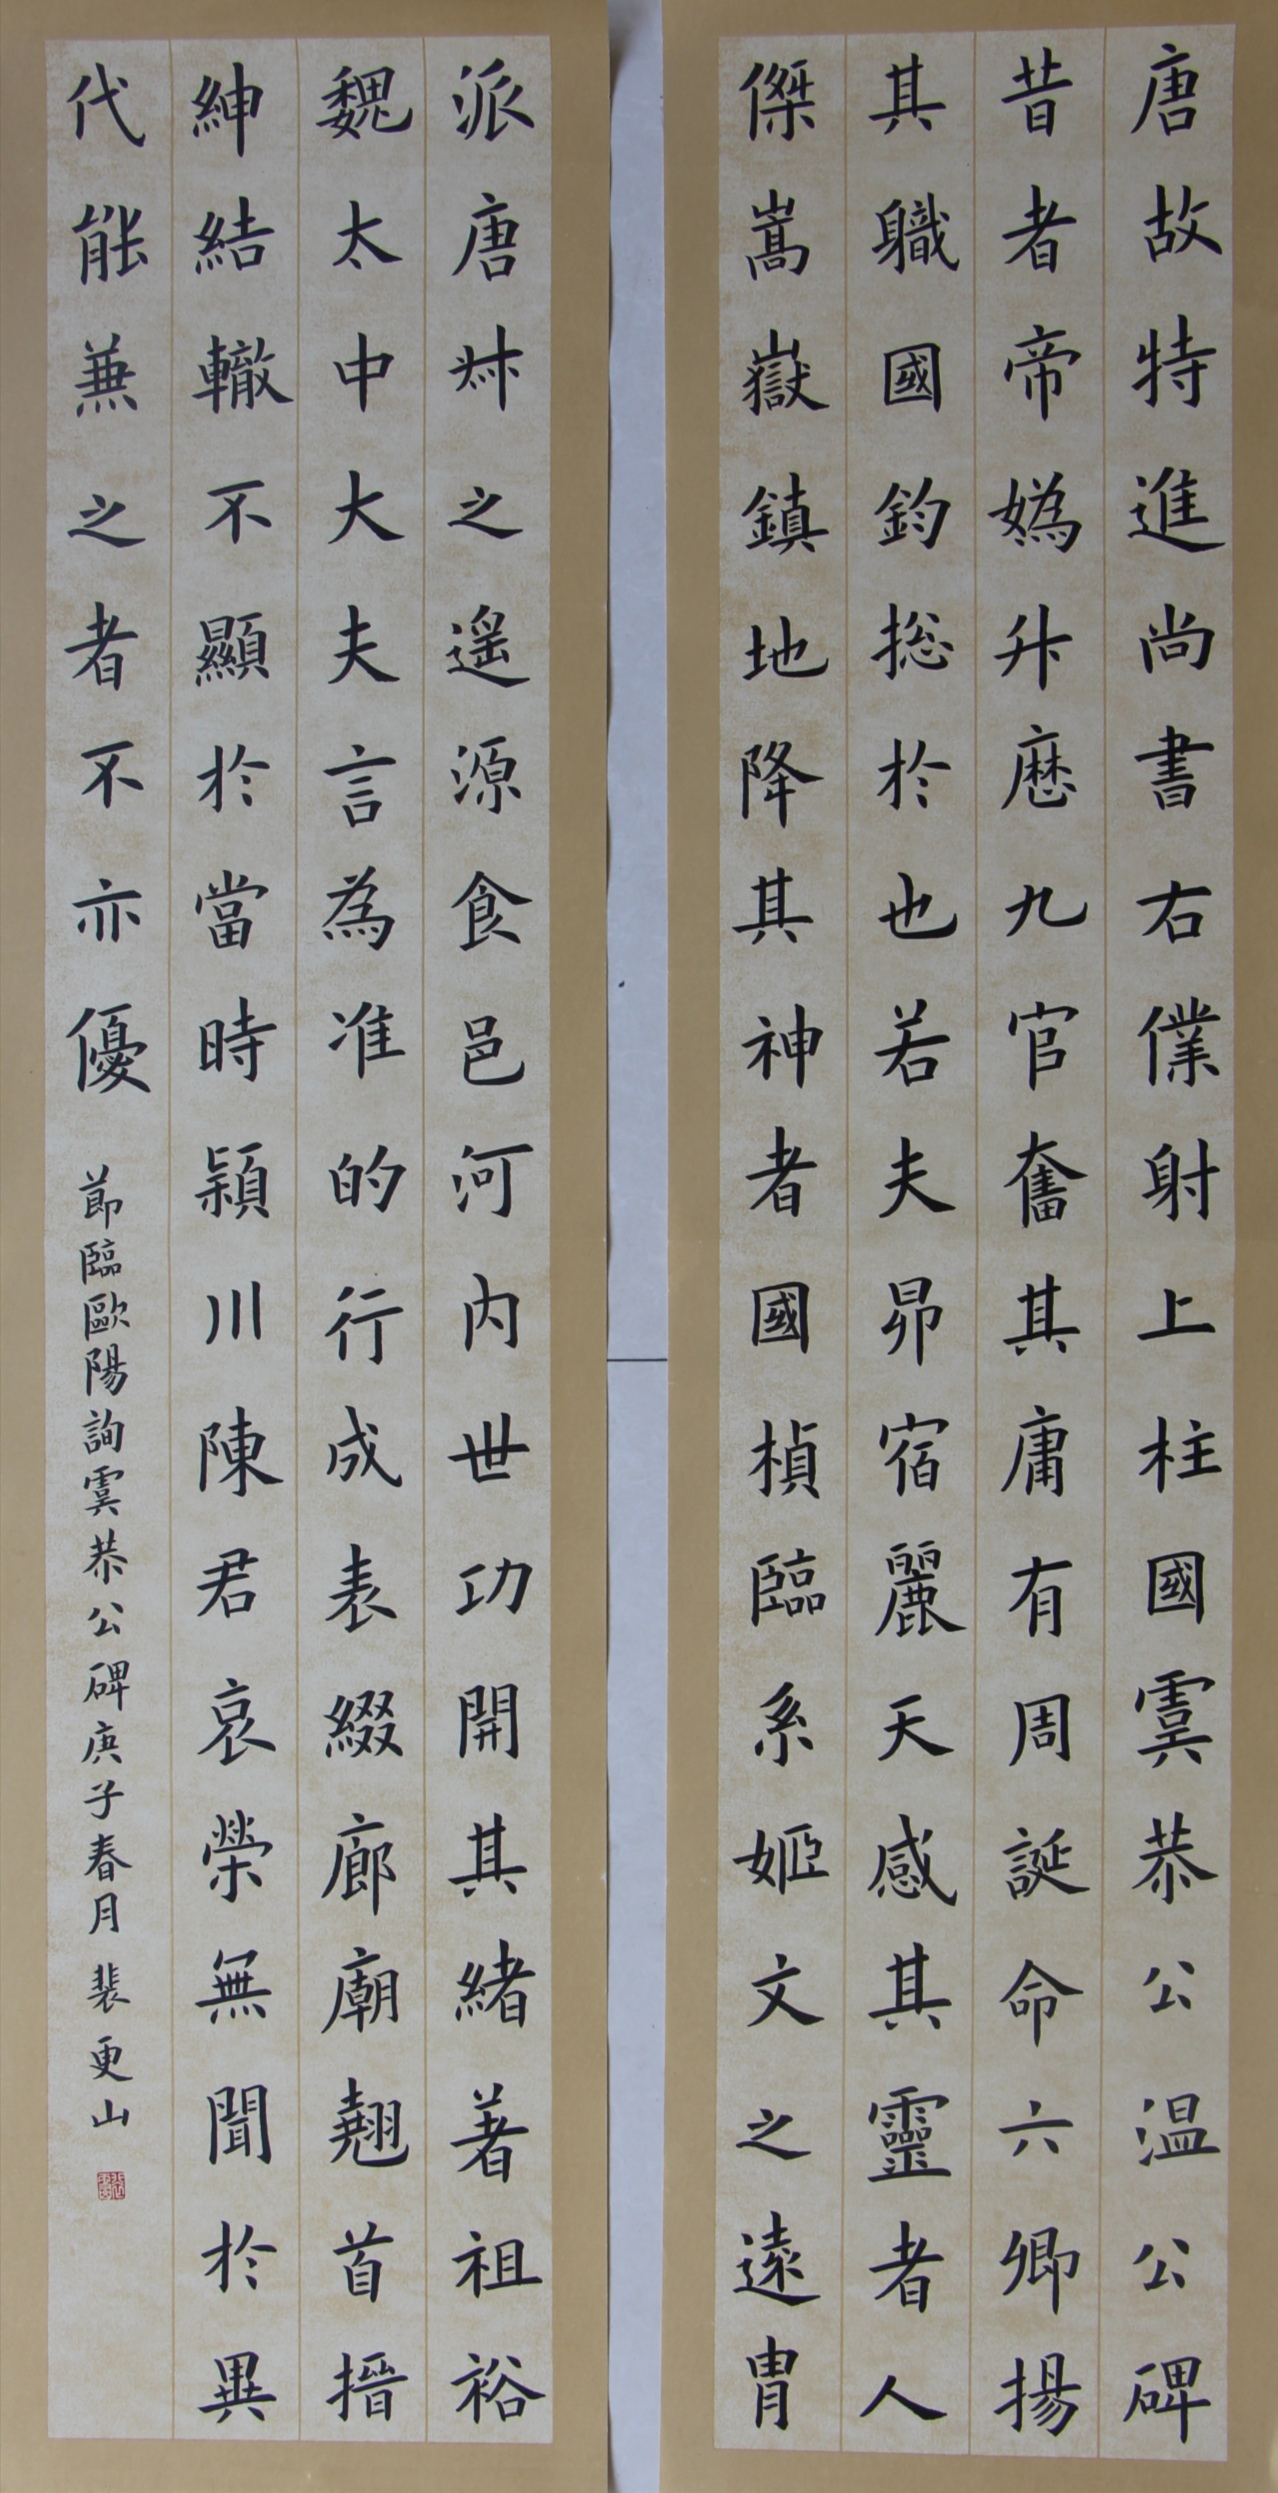 唐故特進尚書右僕射上柱國虞恭公溫公碑
昔者帝媯升歷九官奮其庸有周誕命六卿揚
其職國鈞捴於也若夫昴宿麗天感其靈者人
傑嵩嶽鎮地降其神者國楨臨系姬文之遠胄
派唐叔之遥源食邑河内世功開其緒著祖裕
魏太中大夫言為准的行成表綴廊廟翹首搢
紳結轍不顯於當時潁川陳君哀榮無聞於異
代能兼之者不亦優
節臨歐陽詢虞恭公碑庚子春月裴更山